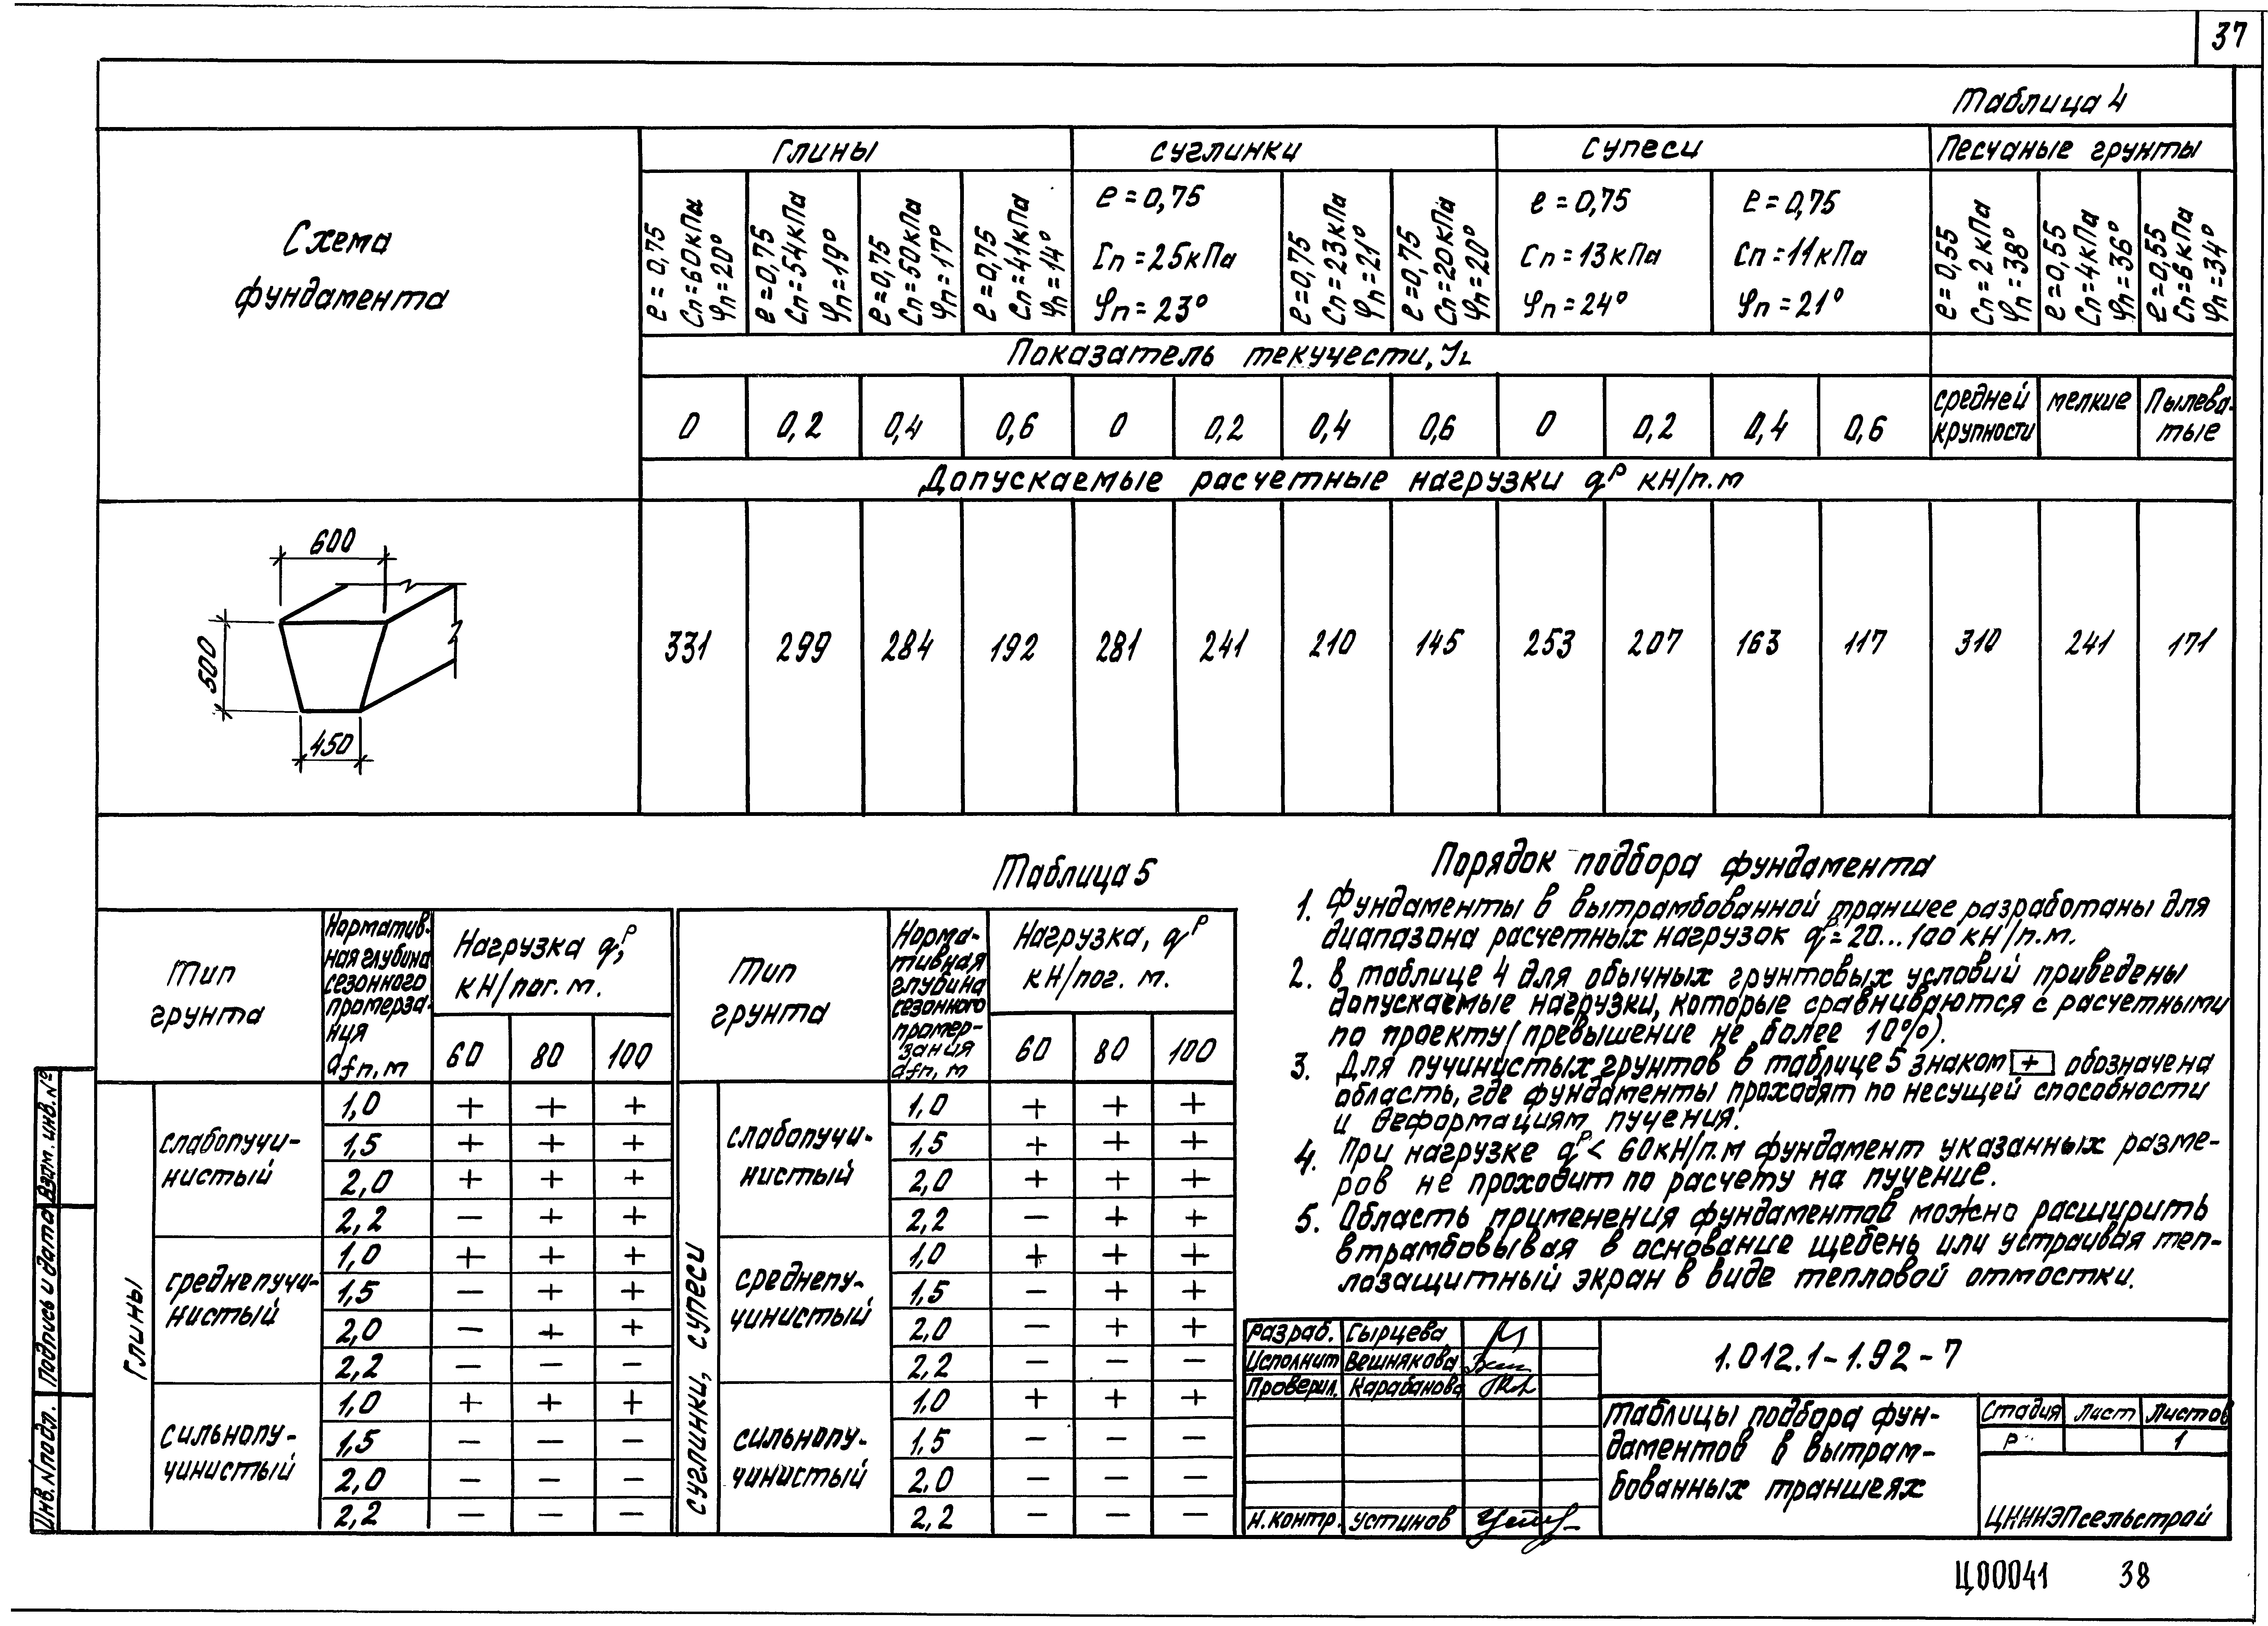 37
Таблица 4
Схема
фундамента
Глины
суглинки
супеси
Песчаные грунты
e=0,75
Cп=60кПа
φп=20°
e=0,75
Cп=54кПа
φп=19°
e=0,75
Cп=50кПа
φп=17°
e=0,75
Cп=41кПа
φп=14°
e=0,75
Cп=25кПа
φп=23°
e=0,75
Cп=23кПа
φп=21°
e=0,75
Cп=20кПа
φп=20°
e=0,75
Cп=13кПа
φп=24°
e=0,75
Cп=11кПа
φп=21°
e=0,55
Cп=2кПа
φп=38°
e=0,55
Cп=4кПа
φп=36°
e=0,55
Cп=6кПа
φп=34°
Показатель текучести, JL
0 0,2 0,4 0,6 0 0,2 0,4 0,6 0 0,2 0,4 0,6
средней
крупности
мелкие
Пылева-
тые
Допускаемые расчетные нагрузки qᵖ кН/п.м
600
500
450
331 299 284 192 281 241 210 145 253 207 163 117 310 241 171
Таблица 5
Тип
грунта
Норматив-
ная глубина
сезонного
промерза-
ния
dfп, м
Нагрузка qᵖ,
кН/пог. м.
60 80 100
Глины
слабопучи-
нистый
1,0 + + +
1,5 + + +
2,0 + + +
2,2 – + +
среднепучи-
нистый
1,0 + + +
1,5 – + +
2,0 – + +
2,2 – – –
сильнопу-
чинистый
1,0 + + +
1,5 – – –
2,0 – – –
2,2 – – –
Тип
грунта
Норма-
тивная
глубина
сезонного
промер-
зания
dfп, м
Нагрузка, qᵖ
кН/пог. м.
60 80 100
суглинки, супеси
слабопучи-
нистый
1,0 + + +
1,5 + + +
2,0 + + +
2,2 – + +
среднепу-
чинистый
1,0 + + +
1,5 – + +
2,0 – + +
2,2 – – –
сильнопу-
чинистый
1,0 + + +
1,5 – – –
2,0 – – –
2,2 – – –
Порядок подбора фундамента
1. Фундаменты в вытрамбованной траншее разработаны для
диапазона расчетных нагрузок qᵖ=20...100 кН/п.м.
2. В таблице 4 для обычных грунтовых условий приведены
допускаемые нагрузки, которые сравниваются с расчетными
по проекту (превышение не более 10%).
3. Для пучинистых грунтов в таблице 5 знаком + обозначена
область, где фундаменты проходят по несущей способности
и деформациям пучения.
4. При нагрузке qᵖ < 60кН/п.м фундамент указанных разме-
ров не проходит по расчету на пучение.
5. Область применения фундаментов можно расширить
втрамбовывая в основание щебень или устраивая теп-
лозащитный экран в виде тепловой отмостки.
Разраб. Сырцева
Исполнит Вешнякова
Проверил. Карабанова
Н.контр. Устинов
1.012.1-1.92-7
Таблицы подбора фун-
даментов в вытрам-
бованных траншеях
Стадия Лист Листов
Р 1
ЦНИИЭПсельстрой
Взам. инв. №
Подпись и дата
Инв.№подл.
Ц00041 38